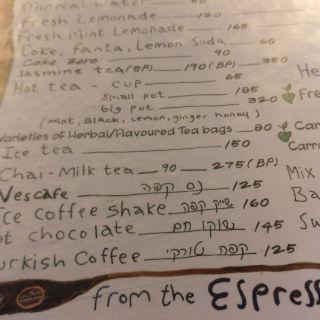 Mineral Water
Fresh Lemonade ___ 120
Fresh Mint Lemonade ___ 165
Coke, Fanta, Lemon Soda ___ 60
Coke Zero ___ 90
Jasmine tea(BP) ___ 190(BP) ___ 350
Hot tea - cup ___ 65
Small pot ___ 185
big pot ___ 320
(mint, Black, Lemon, ginger honey)
Varieties of Herbal/Flavoured Tea bags ___ 80
Ice tea ___ 150
Chai-Milk tea __ 90 __ 275(BP)
Nescafe ___ נס קפה ___ 125
Ice Coffee Shake ___ שייק קפה ___ 160
Hot chocolate ___ שוקו חם ___ 145
Turkish Coffee ___ קפה טורקי ___ 125
He
Fre
Car
Carr
Mix
Ba
Su
from the Espress